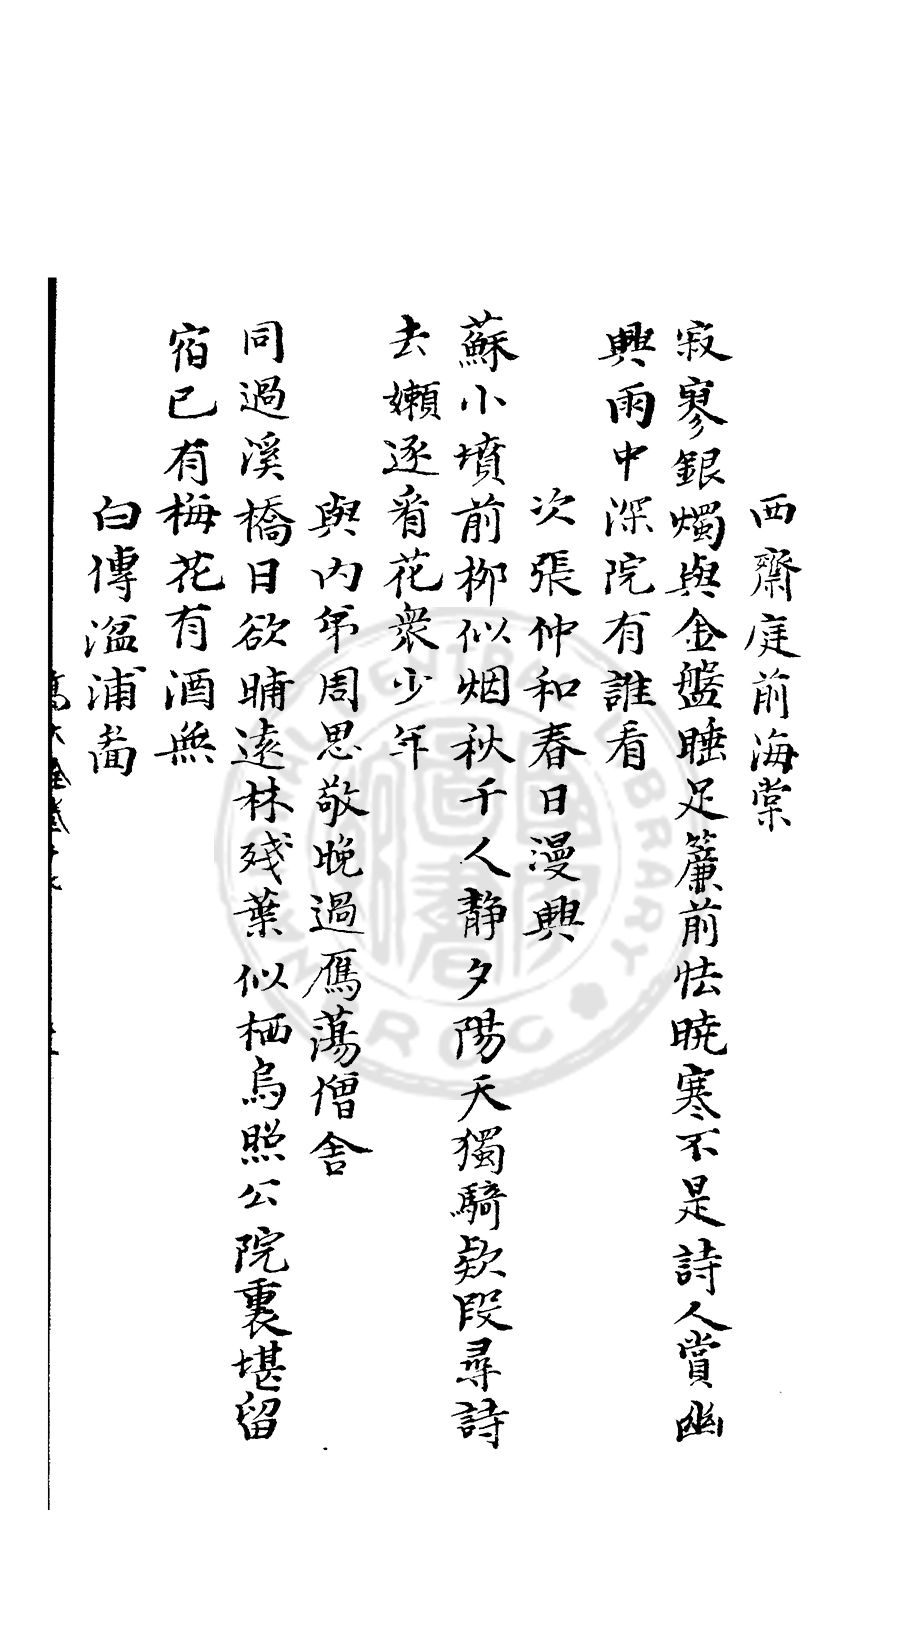 西齋庭前海棠
寂寥銀燭與金盤睡足簾前怯曉寒不是詩人賞幽
興雨中深院有誰看
次張仲和春日漫興
蘇小墳前柳似烟秋千人静夕陽天獨騎欵段尋詩
去嬾逐看花衆少年
與内弟周思敬晚過鴈蕩僧舍
同過溪橋日欲晡遠林殘葉似栖烏照公院裏堪留
宿已有梅花有酒無
白傳湓浦啚
NATIONAL CENTRAL LIBRARY R.O.C.